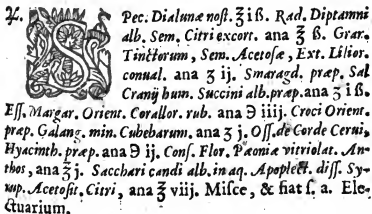 ♃. SPec. Dialunæ noſt. ℥ i ß. Rad. Diptamni
alb. Sem. Citri excort. ana ℥ ß. Gran.
Tinctorum, Sem. Acetoſæ, Ext. Lilior.
conual. ana ʒ ij. Smaragd. præp. Sal
Cranij hum. Succini alb. præp. ana ʒ i ß.
Eſſ. Margar. Orient. Corallor. rub. ana ℈ iiij. Croci Orient.
præp. Galang. min. Cubebarum. ana ʒ j. Oſſ. de Corde Cerui,
Hyacinth. præp. ana ℈ ij. Conſ. Flor. Pæoniæ vitriolat. An-
thos, ana ℥ j. Sacchari candi alb. in aq. Apoplect. diſſ. Sy-
rup. Acetoſit. Citri, ana ℥ viij. Miſce, & fiat ſ. a. Ele-
ctuarium.